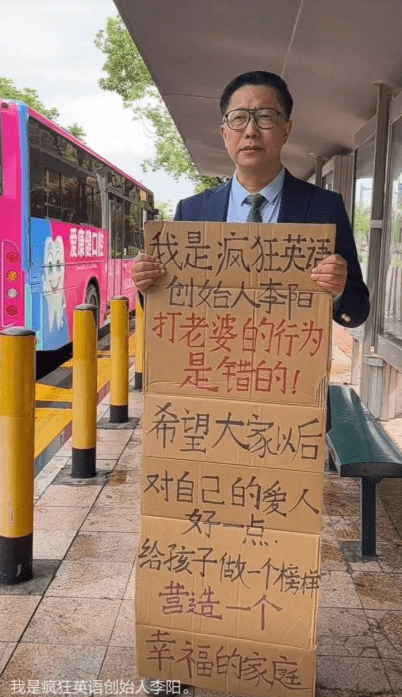 爱康健口腔
我是疯狂英语
创始人李阳
打老婆的行为
是错的!
希望大家以后
对自己的爱人
好一点
给孩子做一个榜样
营造一个
幸福的家庭
我是疯狂英语创始人李阳。